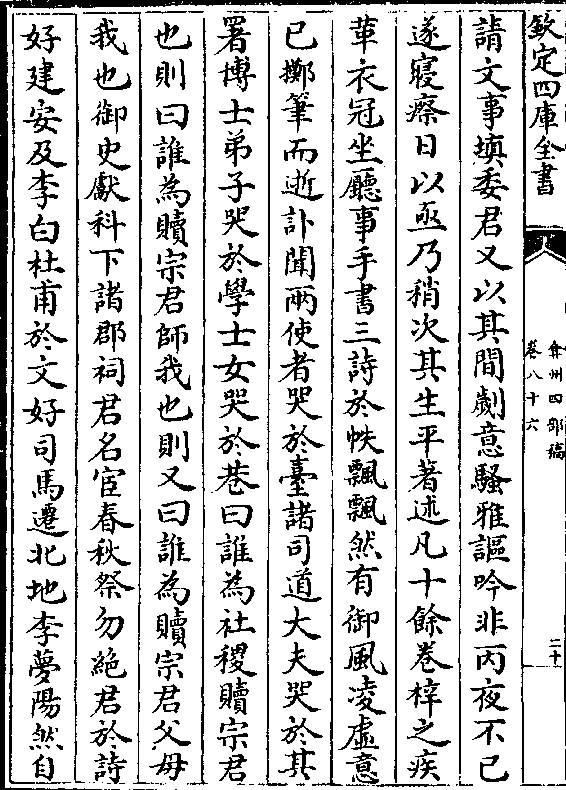 欽定四庫全書
弇州四部稿
卷八十六
二十
請文事填委君又以其間劌意騷雅謳吟非丙夜不已
遂寢瘵日以亟乃稍次其生平著述凡十餘卷梓之疾
革衣冠坐廳事手書三詩於帙飄飄然有御風凌虛意
已擲筆而逝訃聞兩使者哭於臺諸司道大夫哭於其
署博士弟子哭於學士女哭於巷曰誰為社稷贖宗君
也則曰誰為贖宗君師我也則又曰誰為贖宗君父母
我也御史獻科下諸郡祠君名宦春秋祭勿絕君於詩
好建安及李白杜甫於文好司馬遷北地李夢陽然自